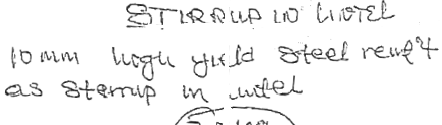 STIRRUP IN LINTEL
10mm high yield steel renf't
as stirrup in lintel